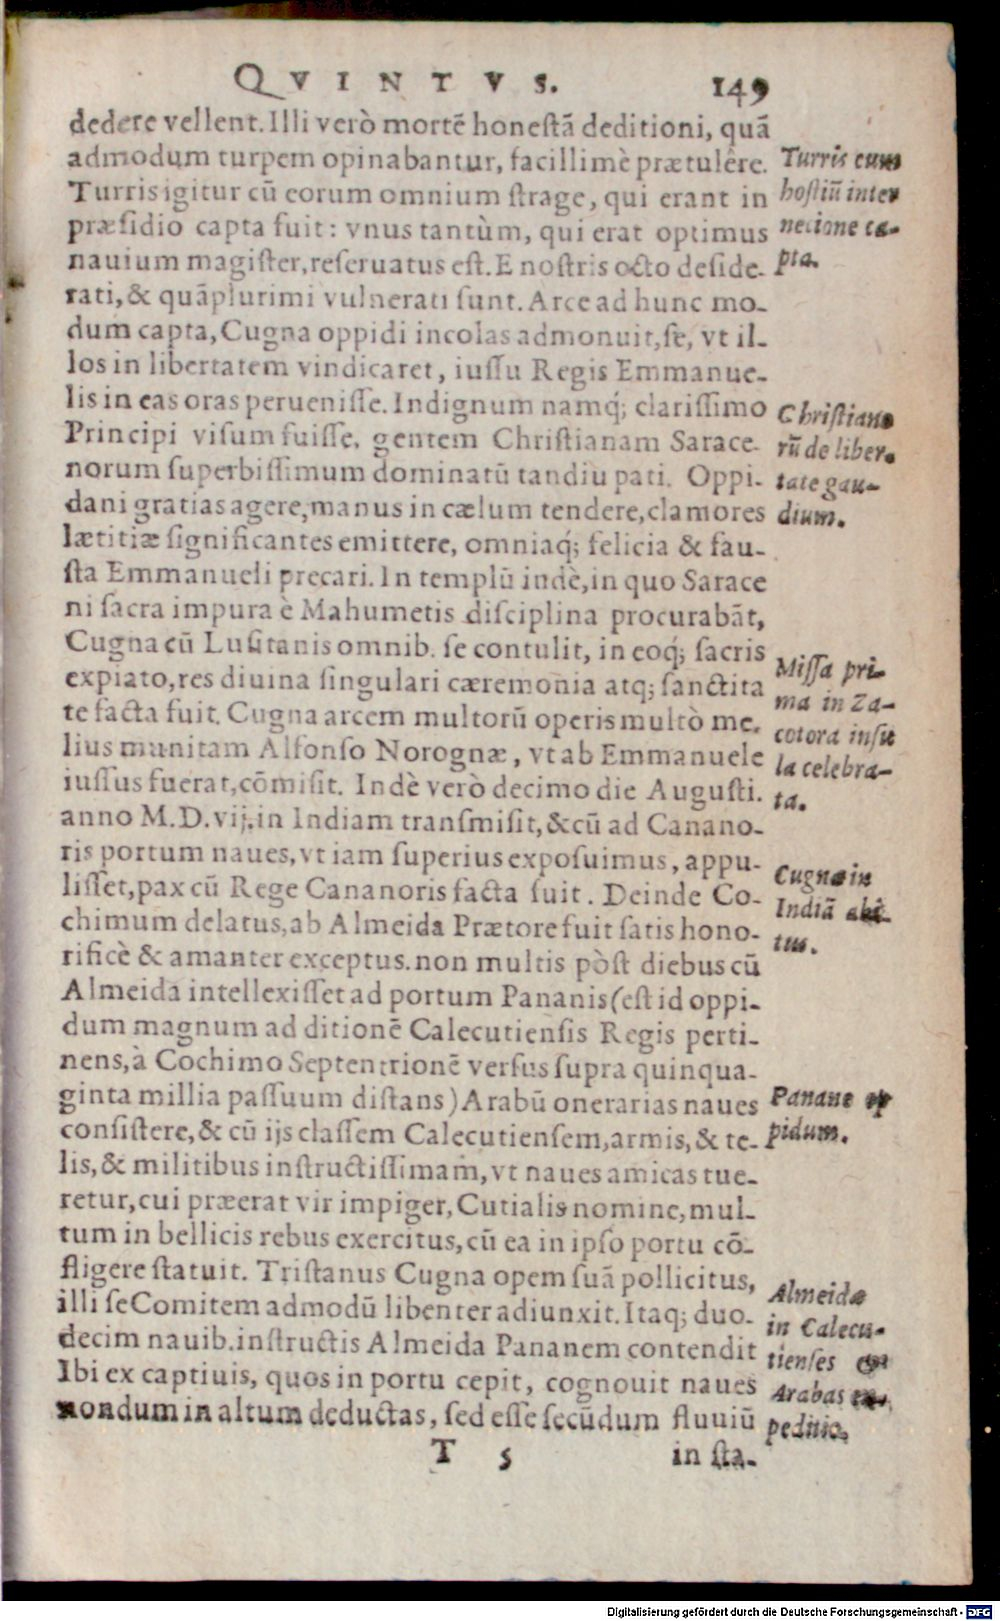 QVINTVS. 149
dedere vellent. Illi verò mortē honeſtā deditioni, quā
admodum turpem opinabantur, facillimè prætulêre.
Turris igitur cū eorum omnium ſtrage, qui erant in
præſidio capta fuit: vnus tantùm, qui erat optimus
nauium magiſter, reſeruatus eſt. E noſtris octo deſide-
rati, & quāplurimi vulnerati ſunt. Arce ad hunc mo-
dum capta, Cugna oppidi incolas admonuit, ſe, vt il-
los in libertatem vindicaret, iuſſu Regis Emmanue-
lis in eas oras perueniſſe. Indignum namq́; clariſſimo
Principi viſum fuiſſe, gentem Chriſtianam Sarace-
norum ſuperbiſſimum dominatū tandiu pati. Oppi-
dani gratias agere, manus in cælum tendere, clamores
lætitiæ ſignificantes emittere, omniaq́; felicia & fau-
ſta Emmanueli precari. In templū indè, in quo Sarace
ni ſacra impura è Mahumetis diſciplina procurabāt,
Cugna cū Luſitanis omnib. ſe contulit, in eoq́; ſacris
expiato, res diuina ſingulari cæremonia atq; ſanctita
te facta fuit. Cugna arcem multorū operis multò me-
lius munitam Alfonſo Norognæ, vt ab Emmanuele
iuſſus fuerat, cōmiſit. Indè verò decimo die Auguſti.
anno M.D.vij. in Indiam tranſmiſit, & cū ad Canano-
ris portum naues, vt iam ſuperius expoſuimus, appu-
liſſet, pax cū Rege Cananoris facta fuit. Deinde Co-
chimum delatus, ab Almeida Prætore fuit ſatis hono-
rificè & amanter exceptus. non multis pòſt diebus cū
Almeida intellexiſſet ad portum Pananis (eſt id oppi-
dum magnum ad ditionē Calecutienſis Regis perti-
nens, à Cochimo Septentrionē verſus ſupra quinqua-
ginta millia paſſuum diſtans) Arabū onerarias naues
conſiſtere, & cū ijs claſſem Calecutienſem, armis, & te-
lis, & militibus inſtructiſſimam, vt naues amicas tue-
retur, cui præerat vir impiger, Cutialis nomine, mul-
tum in bellicis rebus exercitus, cū ea in ipſo portu cō-
fligere ſtatuit. Triſtanus Cugna opem ſuā pollicitus,
illi ſe Comitem admodū libenter adiunxit. Itaq; duo-
decim nauib. inſtructis Almeida Pananem contendit
Ibi ex captiuis, quos in portu cepit, cognouit naues
nondum in altum deductas, ſed eſſe ſecūdum fluuiū
T 5 in ſta-
Turris cum
hoſtiū inter
necione ca-
pta.
Chriſtiano
rū de liber-
tate gau-
dium.
Miſſa pri-
ma in Za-
cotora inſu
la celebra-
ta.
Cugnæ in
Indiā abi-
tus.
Panane op
pidum.
Almeidæ
in Calecu-
tienſes &
Arabas ex-
peditio.
Digitalisierung gefördert durch die Deutsche Forschungsgemeinschaft - DFG